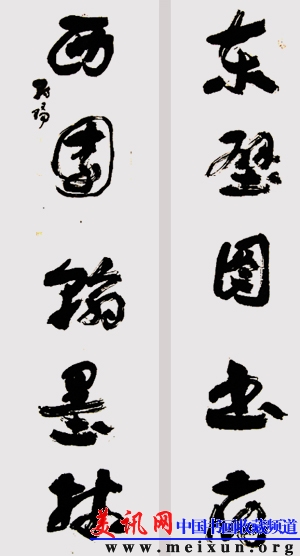 东壁图书府
西園翰墨林
美讯网 中国书画收藏频道
www.meixun.org